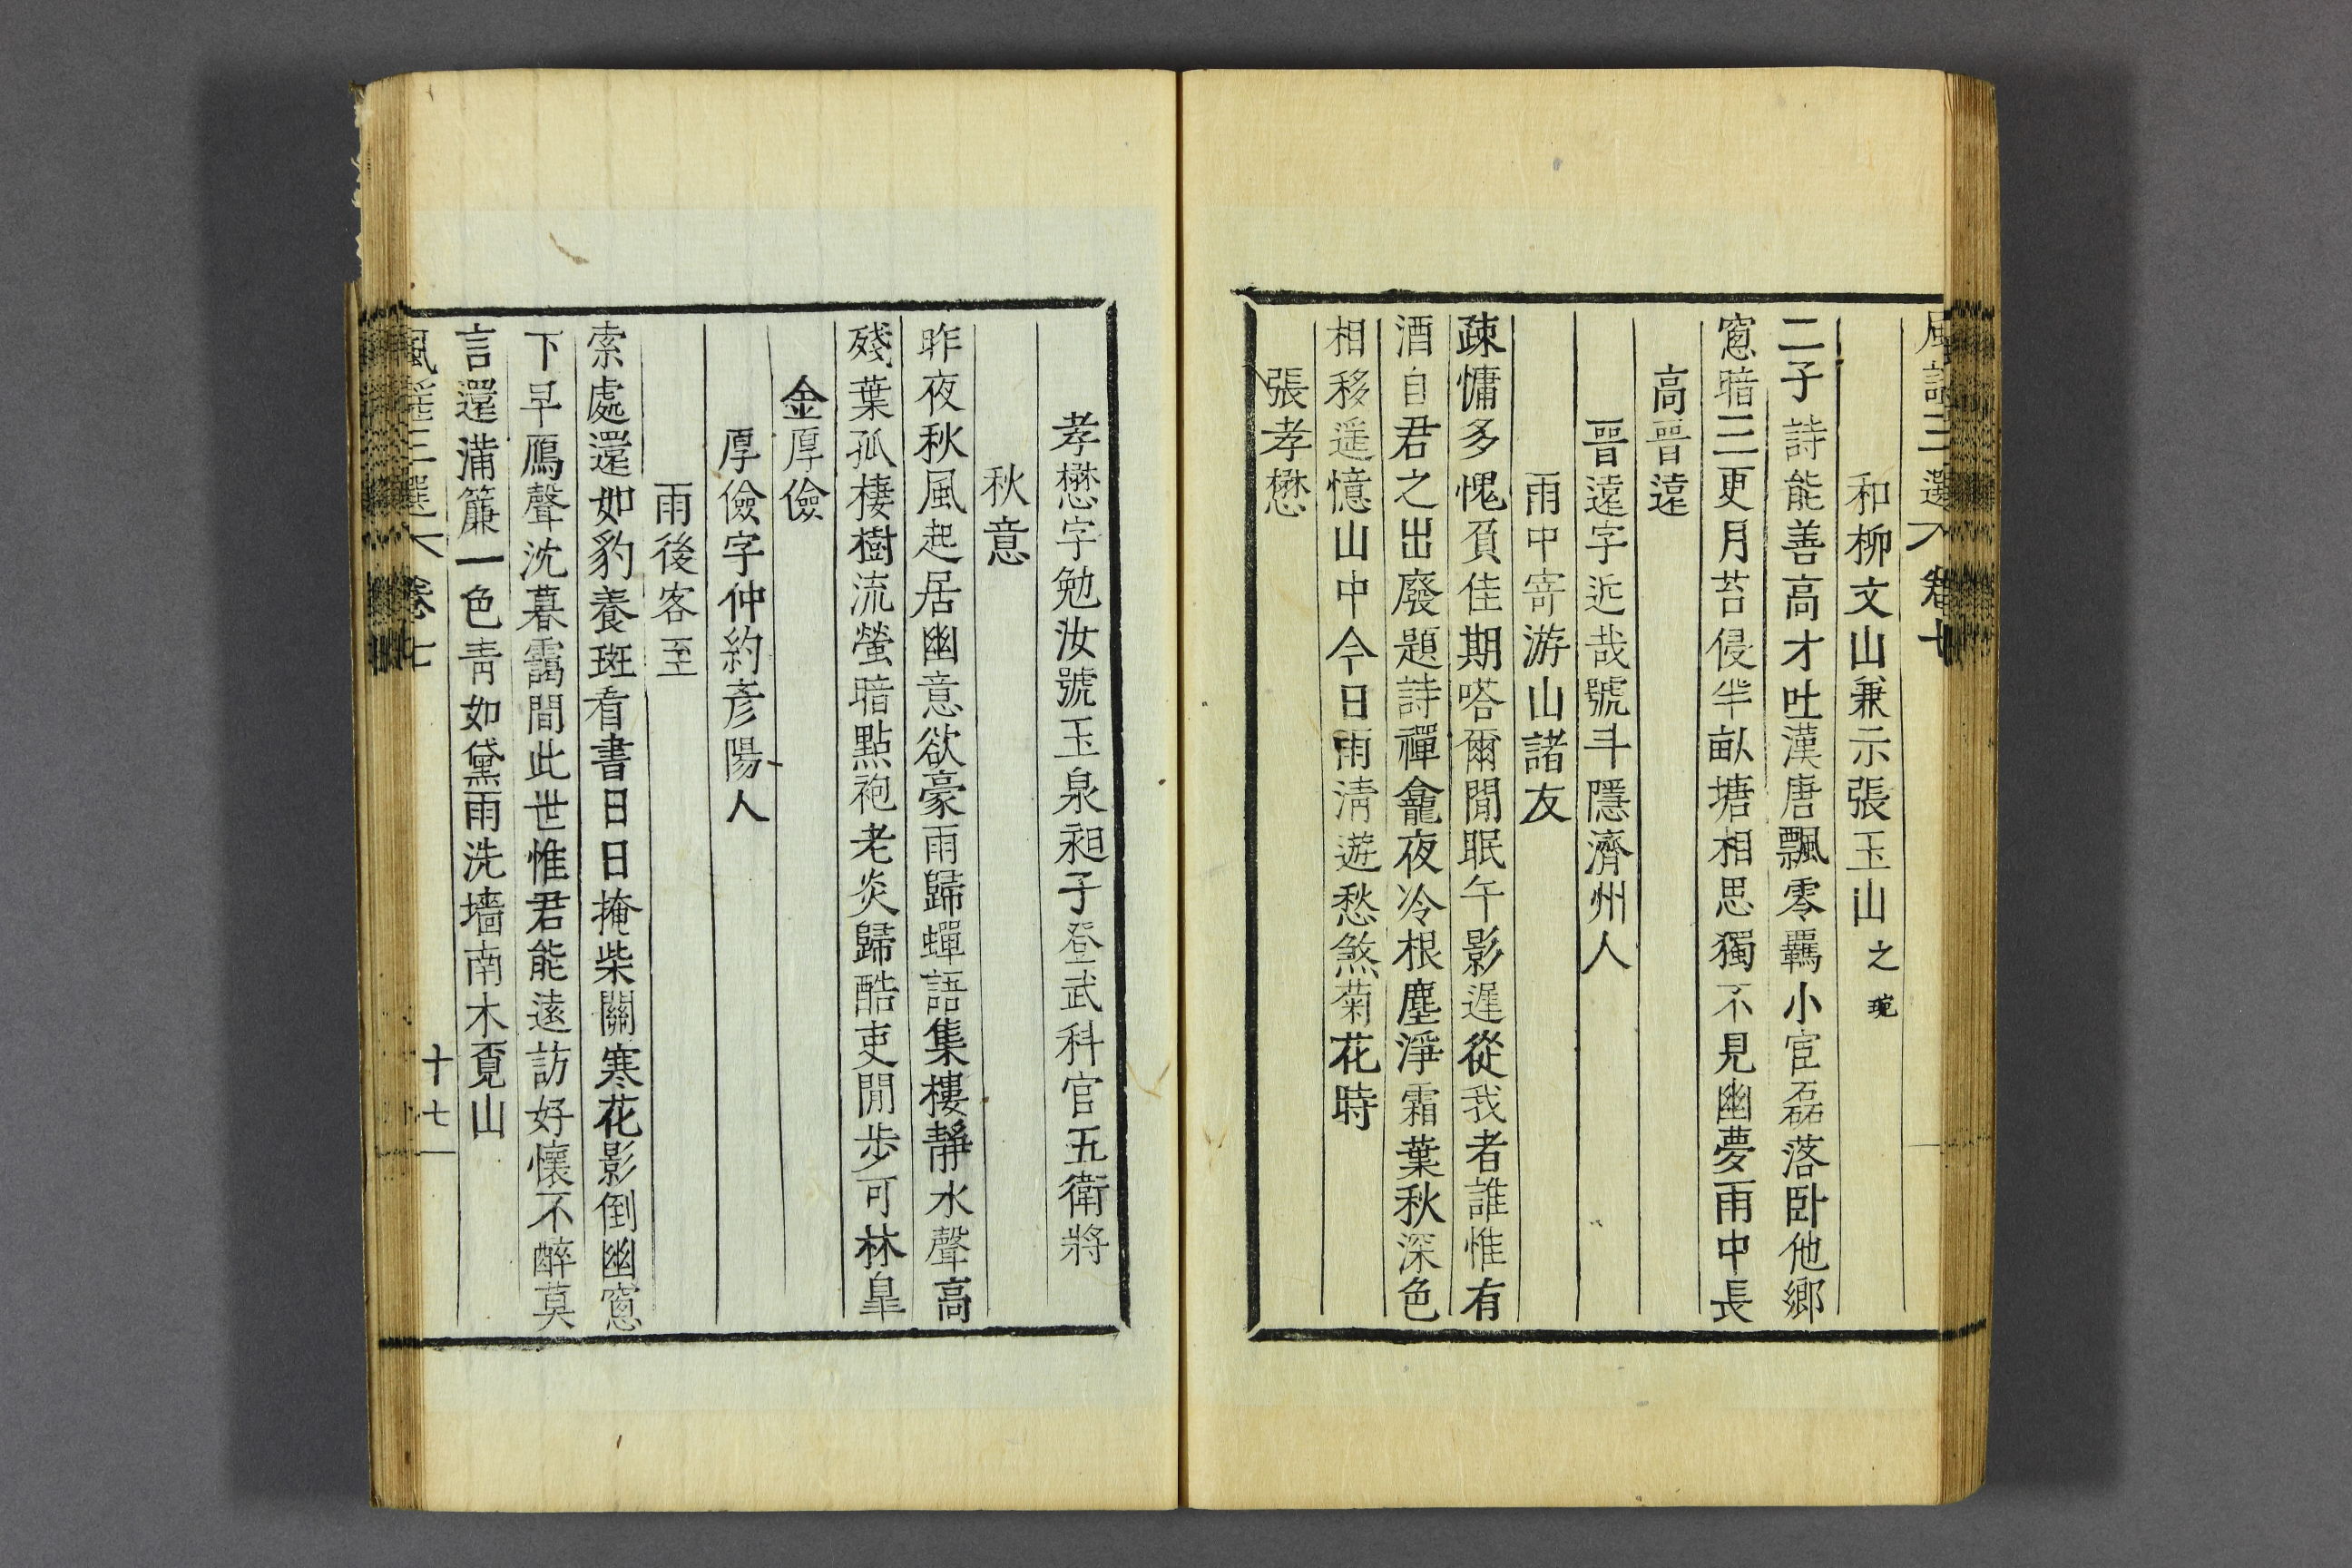 風謠三選 卷七
和柳文山兼示張玉山之琬
二子詩能善高才吐漢唐飄零羈小宦磊落卧他鄉
窓暗三更月苔侵半畝塘相思獨不見幽夢雨中長
高晋遠
晋遠字近哉號斗隱濟州人
雨中寄游山諸友
疎慵多愧負佳期嗒爾閒眠午影遲從我者誰惟有
酒自君之出廢題詩禪龕夜冷根塵淨霜葉秋深色
相移遥憶山中今日雨淸遊愁煞菊花時
張孝懋
孝懋字勉汝號玉泉昶子登武科官五衛將
秋意
昨夜秋風起居幽意欲豪雨歸蟬語集樓靜水聲高
殘葉孤棲樹流螢暗點袍老炎歸酷吏閒步可林皐
金厚儉
厚儉字仲約彥陽人
雨後客至
索處還如豹養斑看書日日掩柴關寒花影倒幽窓
下早鴈聲沈暮靄間此世惟君能遠訪好懷不醉莫
言還滿簾一色靑如黛雨洗墻南木覓山
風謠三選 卷七 十七